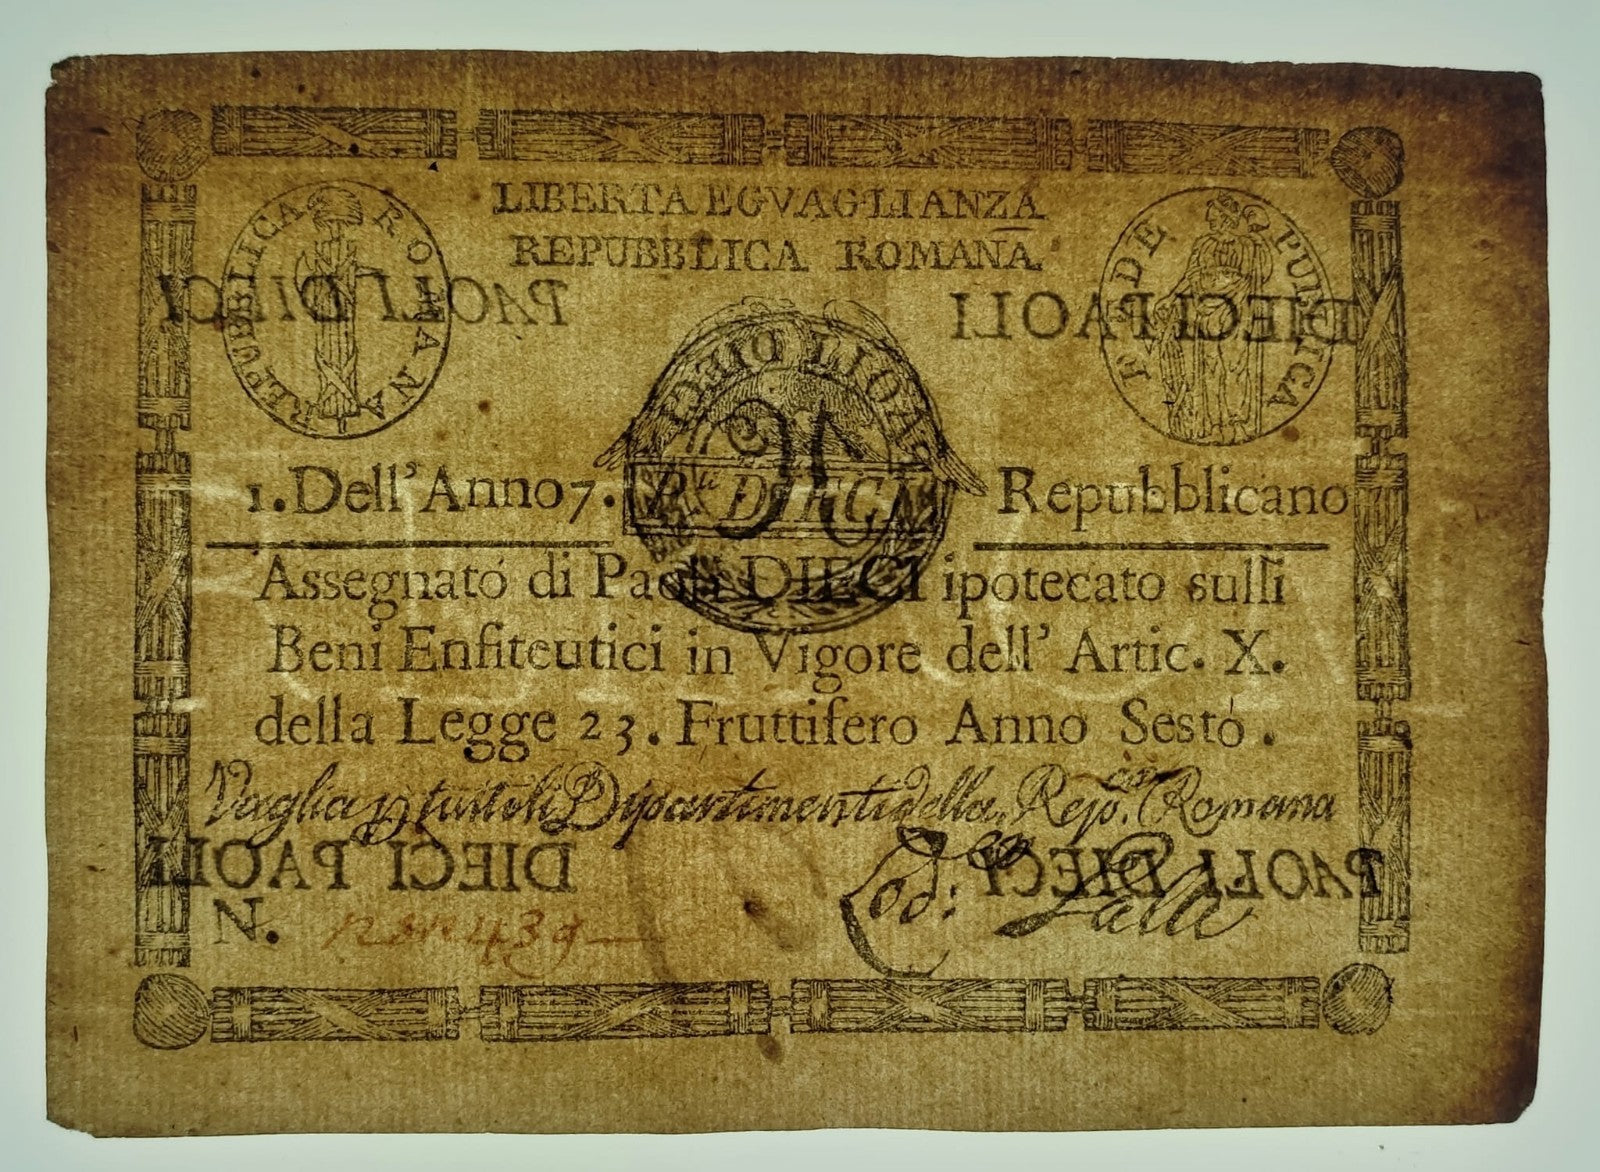 LIBERTA EGVAGLIANZA
REPUBBLICA ROMANA
REPUBBLICA ROMANA
FEDE PUBLICA
PAOLI DIECI
DIECI PAOLI
DIECI PAOLI
1. Dell' Anno 7. Repubblicano
P.li DIECI
Assegnato di Paoli DIECI ipotecato sulli
Beni Enfiteutici in Vigore dell' Artic. X.
della Legge 23. Fruttifero Anno Sesto.
Vaglia p tutti li Dipartimenti della Rep. Romana
DIECI PAOLI
PAOLI DIECI
N.